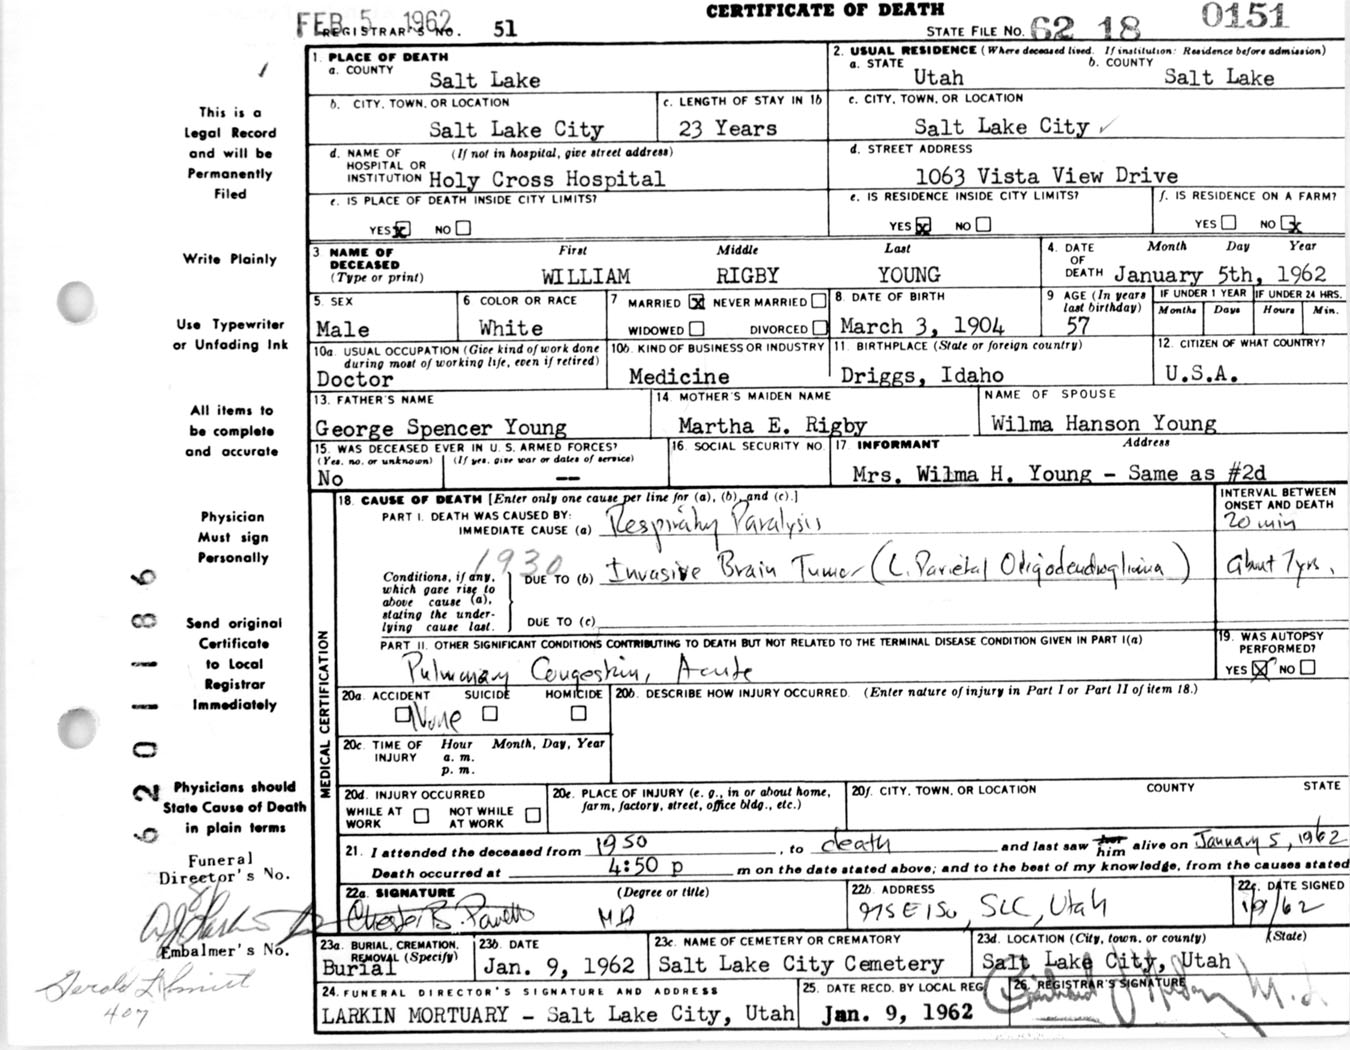 CERTIFICATE OF DEATH
FEB 5 1962
REGISTRAR'S NO. 51
STATE FILE NO. 62 18 0151
This is a
Legal Record
and will be
Permanently
Filed
Write Plainly
Use Typewriter
or Unfading Ink
All items to
be complete
and accurate
Physician
Must sign
Personally
Send original
Certificate
to Local
Registrar
Immediately
Physicians should
State Cause of Death
in plain terms
Funeral
Director's No.
Embalmer's No.
407
62011186
1. PLACE OF DEATH
a. COUNTY
Salt Lake
2. USUAL RESIDENCE (Where deceased lived. If institution: Residence before admission)
a. STATE b. COUNTY
Utah Salt Lake
b. CITY, TOWN, OR LOCATION
Salt Lake City
c. LENGTH OF STAY IN 1b
23 Years
c. CITY, TOWN, OR LOCATION
Salt Lake City
d. NAME OF (If not in hospital, give street address)
HOSPITAL OR
INSTITUTION Holy Cross Hospital
d. STREET ADDRESS
1063 Vista View Drive
e. IS PLACE OF DEATH INSIDE CITY LIMITS?
YES x NO
e. IS RESIDENCE INSIDE CITY LIMITS?
YES x NO
f. IS RESIDENCE ON A FARM?
YES NO x
3 NAME OF DECEASED (Type or print)
First Middle Last
WILLIAM RIGBY YOUNG
4. DATE OF DEATH Month Day Year
January 5th, 1962
5. SEX
Male
6 COLOR OR RACE
White
7 MARRIED X NEVER MARRIED
WIDOWED DIVORCED
8. DATE OF BIRTH
March 3, 1904
9 AGE (In years last birthday)
57
IF UNDER 1 YEAR IF UNDER 24 HRS.
Months Days Hours Min.
10a. USUAL OCCUPATION (Give kind of work done during most of working life, even if retired)
Doctor
10b. KIND OF BUSINESS OR INDUSTRY
Medicine
11. BIRTHPLACE (State or foreign country)
Driggs, Idaho
12. CITIZEN OF WHAT COUNTRY?
U.S.A.
13. FATHER'S NAME
George Spencer Young
14. MOTHER'S MAIDEN NAME
Martha E. Rigby
NAME OF SPOUSE
Wilma Hanson Young
15. WAS DECEASED EVER IN U. S. ARMED FORCES?
(Yes, no, or unknown) (If yes, give war or dates of service)
No --
16. SOCIAL SECURITY NO.
17. INFORMANT Address
Mrs. Wilma H. Young - Same as #2d
MEDICAL CERTIFICATION
18. CAUSE OF DEATH [Enter only one cause per line for (a), (b), and (c).]
INTERVAL BETWEEN ONSET AND DEATH
PART I. DEATH WAS CAUSED BY:
IMMEDIATE CAUSE (a) Respiratory Paralysis 20 min
1930
Conditions, if any, which gave rise to above cause (a), stating the underlying cause last.
DUE TO (b) Invasive Brain Tumor (L. Parietal Oligodendroglioma) about 7 yrs.
DUE TO (c)
PART II. OTHER SIGNIFICANT CONDITIONS CONTRIBUTING TO DEATH BUT NOT RELATED TO THE TERMINAL DISEASE CONDITION GIVEN IN PART I(a)
Pulmonary Congestion, Acute
19. WAS AUTOPSY PERFORMED?
YES X NO
20a. ACCIDENT SUICIDE HOMICIDE
None
20b. DESCRIBE HOW INJURY OCCURRED. (Enter nature of injury in Part I or Part II of item 18.)
20c. TIME OF INJURY Hour Month, Day, Year
a. m.
p. m.
20d. INJURY OCCURRED
WHILE AT WORK NOT WHILE AT WORK
20e. PLACE OF INJURY (e. g., in or about home, farm, factory, street, office bldg., etc.)
20f. CITY, TOWN, OR LOCATION COUNTY STATE
21. I attended the deceased from 1950, to death and last saw her him alive on January 5, 1962
Death occurred at 4:50 p m on the date stated above; and to the best of my knowledge, from the causes stated
22a. SIGNATURE (Degree or title)
Chester B. Powell MD
22b. ADDRESS
975 E 1 So, SLC, Utah
22c. DATE SIGNED
1/9/62
23a. BURIAL, CREMATION, REMOVAL (Specify)
Burial
23b. DATE
Jan. 9, 1962
23c. NAME OF CEMETERY OR CREMATORY
Salt Lake City Cemetery
23d. LOCATION (City, town, or county) (State)
Salt Lake City, Utah
24. FUNERAL DIRECTOR'S SIGNATURE AND ADDRESS
LARKIN MORTUARY - Salt Lake City, Utah
25. DATE RECD. BY LOCAL REG.
Jan. 9, 1962
26. REGISTRAR'S SIGNATURE